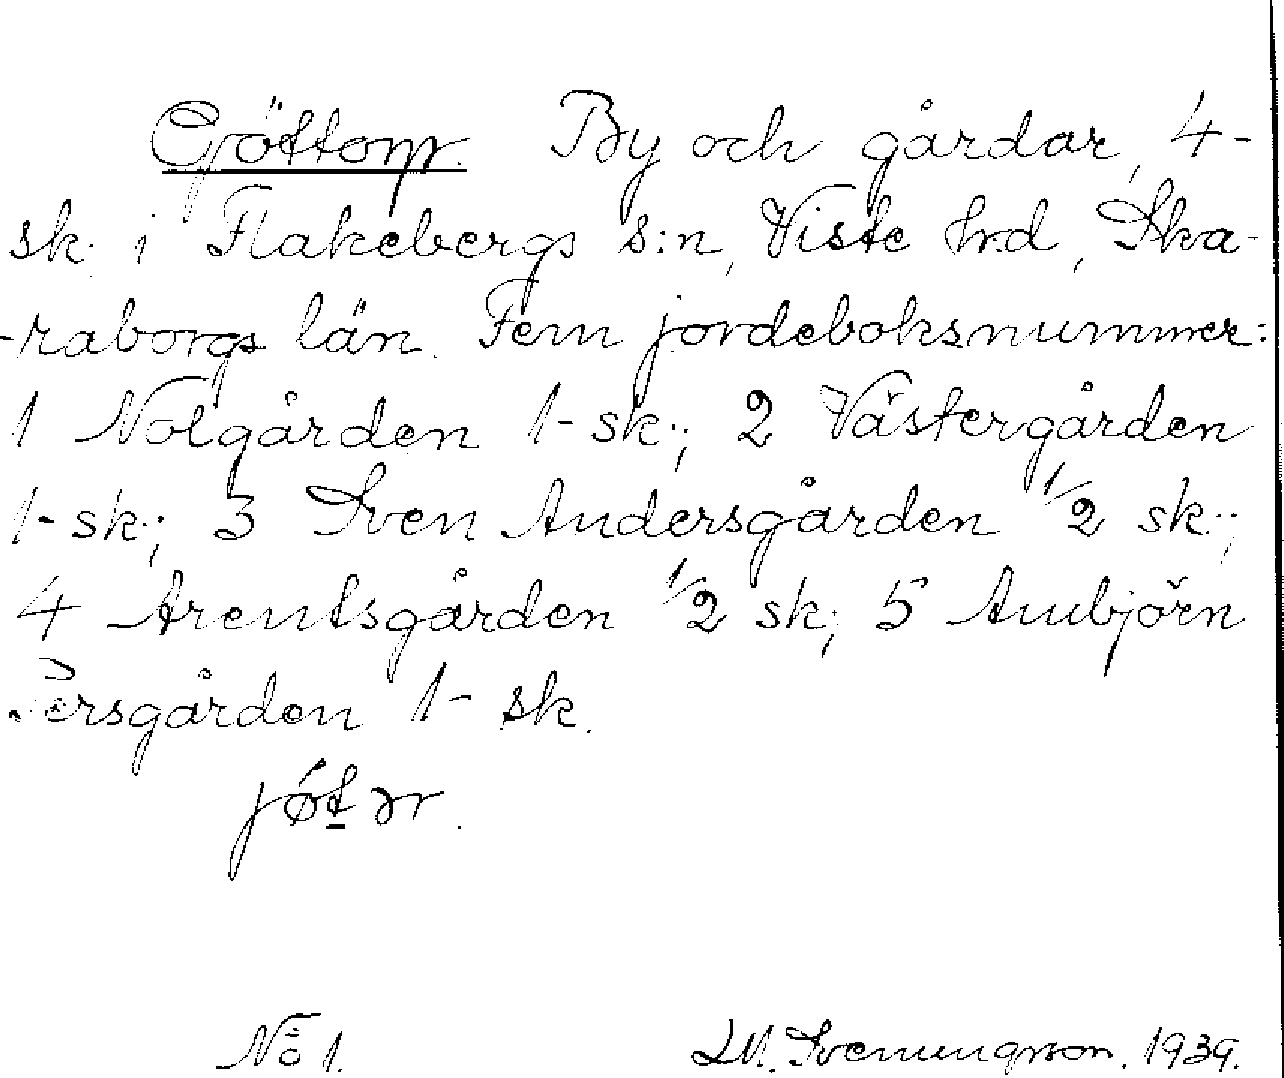 Gjöttorp. By och gårdar, 4-
sk. i Flakebergs s:n, Viste hrd, Ska-
-raborgs län. Fem jordeboksnummer:
1 Nolgården 1- sk.; 2 Västergården
1- sk.; 3 Sven Andersgården 1/2 sk.;
4 Arentsgården 1/2 sk.; 5 Ambjörn
Persgården 1- sk.
No 1. 1939.